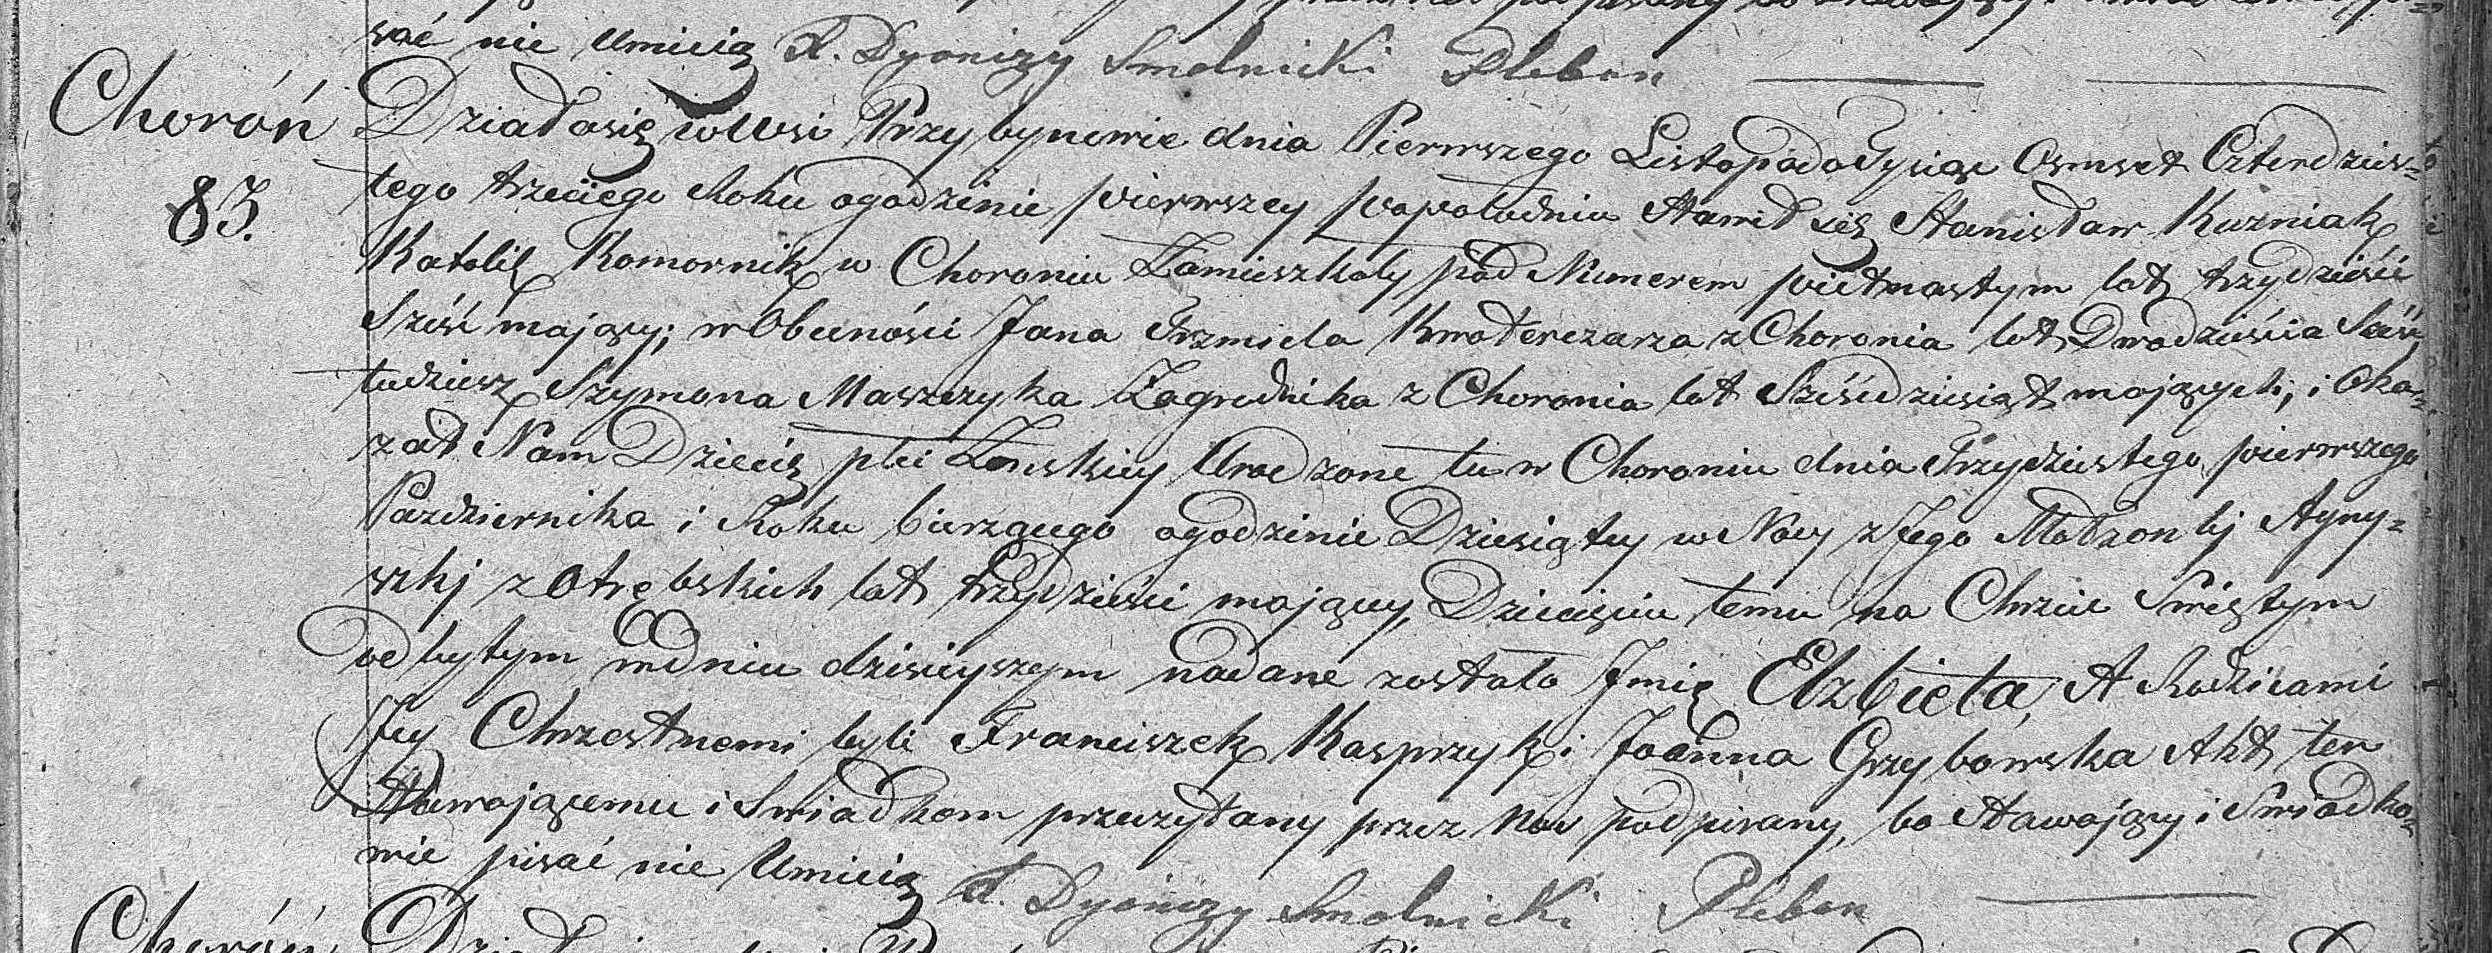 wać nie umieią X. Dyonizy Smolnicki Pleban
Choroń Działo się w Wsi Przybynowie dnia Pierwszego Listopada Tysiąc Osmset Czterdzies=
83. tego trzeciego Roku o godzinie pierwszey popołudniu Stawił się Stanisław Kuzniak
Katolik Komornik w Choroniu Zamieszkały pod Numerem pietnastym lat trzydzieści
Sześć maiący; w Obecności Jana Trzmiela Kwaterczarza z Choronia lat Dwadzieścia Sześć
tudziesz Szymona Maszczyka Zagrodnika z Choronia lat Sześćdziesiąt mających, i Oka=
zał Nam Dziecię płci Żenskiey Urodzone tu w Choroniu dnia Trzydziestego pierwszego
Pazdziernika i Roku bierzącego o godzinie Dziesiątey w Nocy z Jego Małżonkj Agny=
szkj z Otrębskich lat trzydzieści maiącey, Dziecięciu temu na Chrzcie Swiętym
odbytym w dniu dzisieyszym nadane zostało Jmię Elzbieta, A Rodzicami
Jey Chrzestnemi byli Franciszek Kasprzyk i Joanna Grzybowska Akt ten
Stawaiącemu i Swiadkom przeczytany przez Nas podpisany, bo Stawaiący i Swiadko=
wie pisać nie Umieią X. Dyonizy Smolnicki Pleban
Choroń